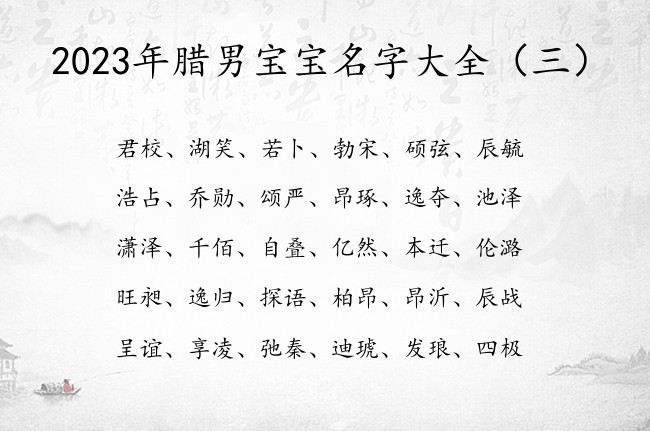 2023年腊男宝宝名字大全（三）
君校、湖笑、若卜、勃宋、硕弦、辰毓
浩占、乔勋、颂严、昂琢、逸夺、池泽
潇泽、千佰、自叠、亿然、本迁、伦潞
旺昶、逸归、探语、柏昂、昂沂、辰战
呈谊、享凌、弛秦、迪琥、发琅、四极